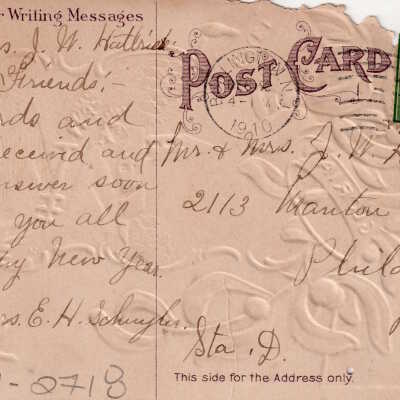 r Writing Messages
s. J. W. Hatbrick
Friends;-
rds and
eceived and
nswer soon
you all
py New Year.
rs. E. H. Schuyler.
-2718
POST CARD
INGTON, N.J.
1910
Mr. & Mrs. J. W.
2113 Manton
Phila
Sta. D.
This side for the Address only.